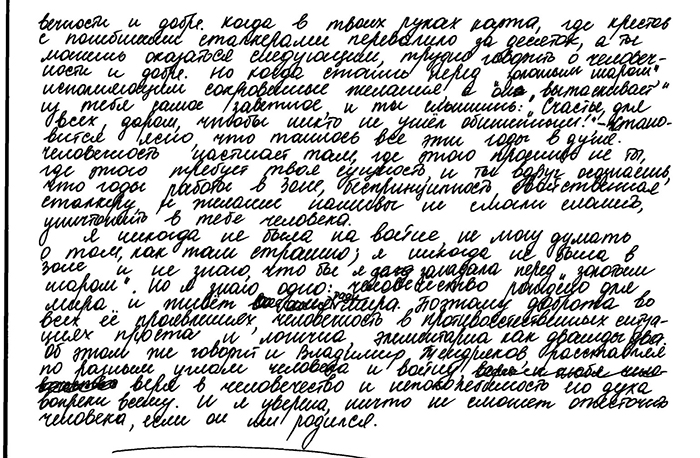 вечности и добре. когда в твоих руках карта, где крестов
с погибшими сталкерами перевалило за десяток, а ты
можешь оказаться следующим, трудно говорить о человеч-
ности и добре. Но когда стоишь перед "золотым шаром"
исполняющим сокровенные желания а "он" "вытаскивает"
из тебя самое заветное, и ты слышишь: "Счастье для
всех, даром, чтобы никто не ушёл обиженным!" - стано-
вится ясно, что таилось все эти годы в душе.
Человечность настигает там, где этого просишь не ты,
где этого требует твоя сущность, и ты вдруг осознаешь,
что годы работы в Зоне, беспринципность свойственная
сталкеру и желание наживы не смогли сломить,
уничтожить в тебе человека.
Я никогда не была на войне, не могу думать
о том, как там страшно; я никогда не была в
зоне и не знаю, что бы я загадала перед "золотым
шаром". Но я знаю одно: человечество рождено для
мира и живёт ради мира. Поэтому доброта во
всех её проявлениях, человечность в противоестественных ситуа-
циях проста и логична, элементарна как дважды два.
Об этом же говорит и Владимир Тендряков расставляя
по разным углам человека и войну,
веря в человечество и непоколебимость его духа
вопреки всему. И я уверена, ничто не сможет ожесточить
человека, если он им родился.